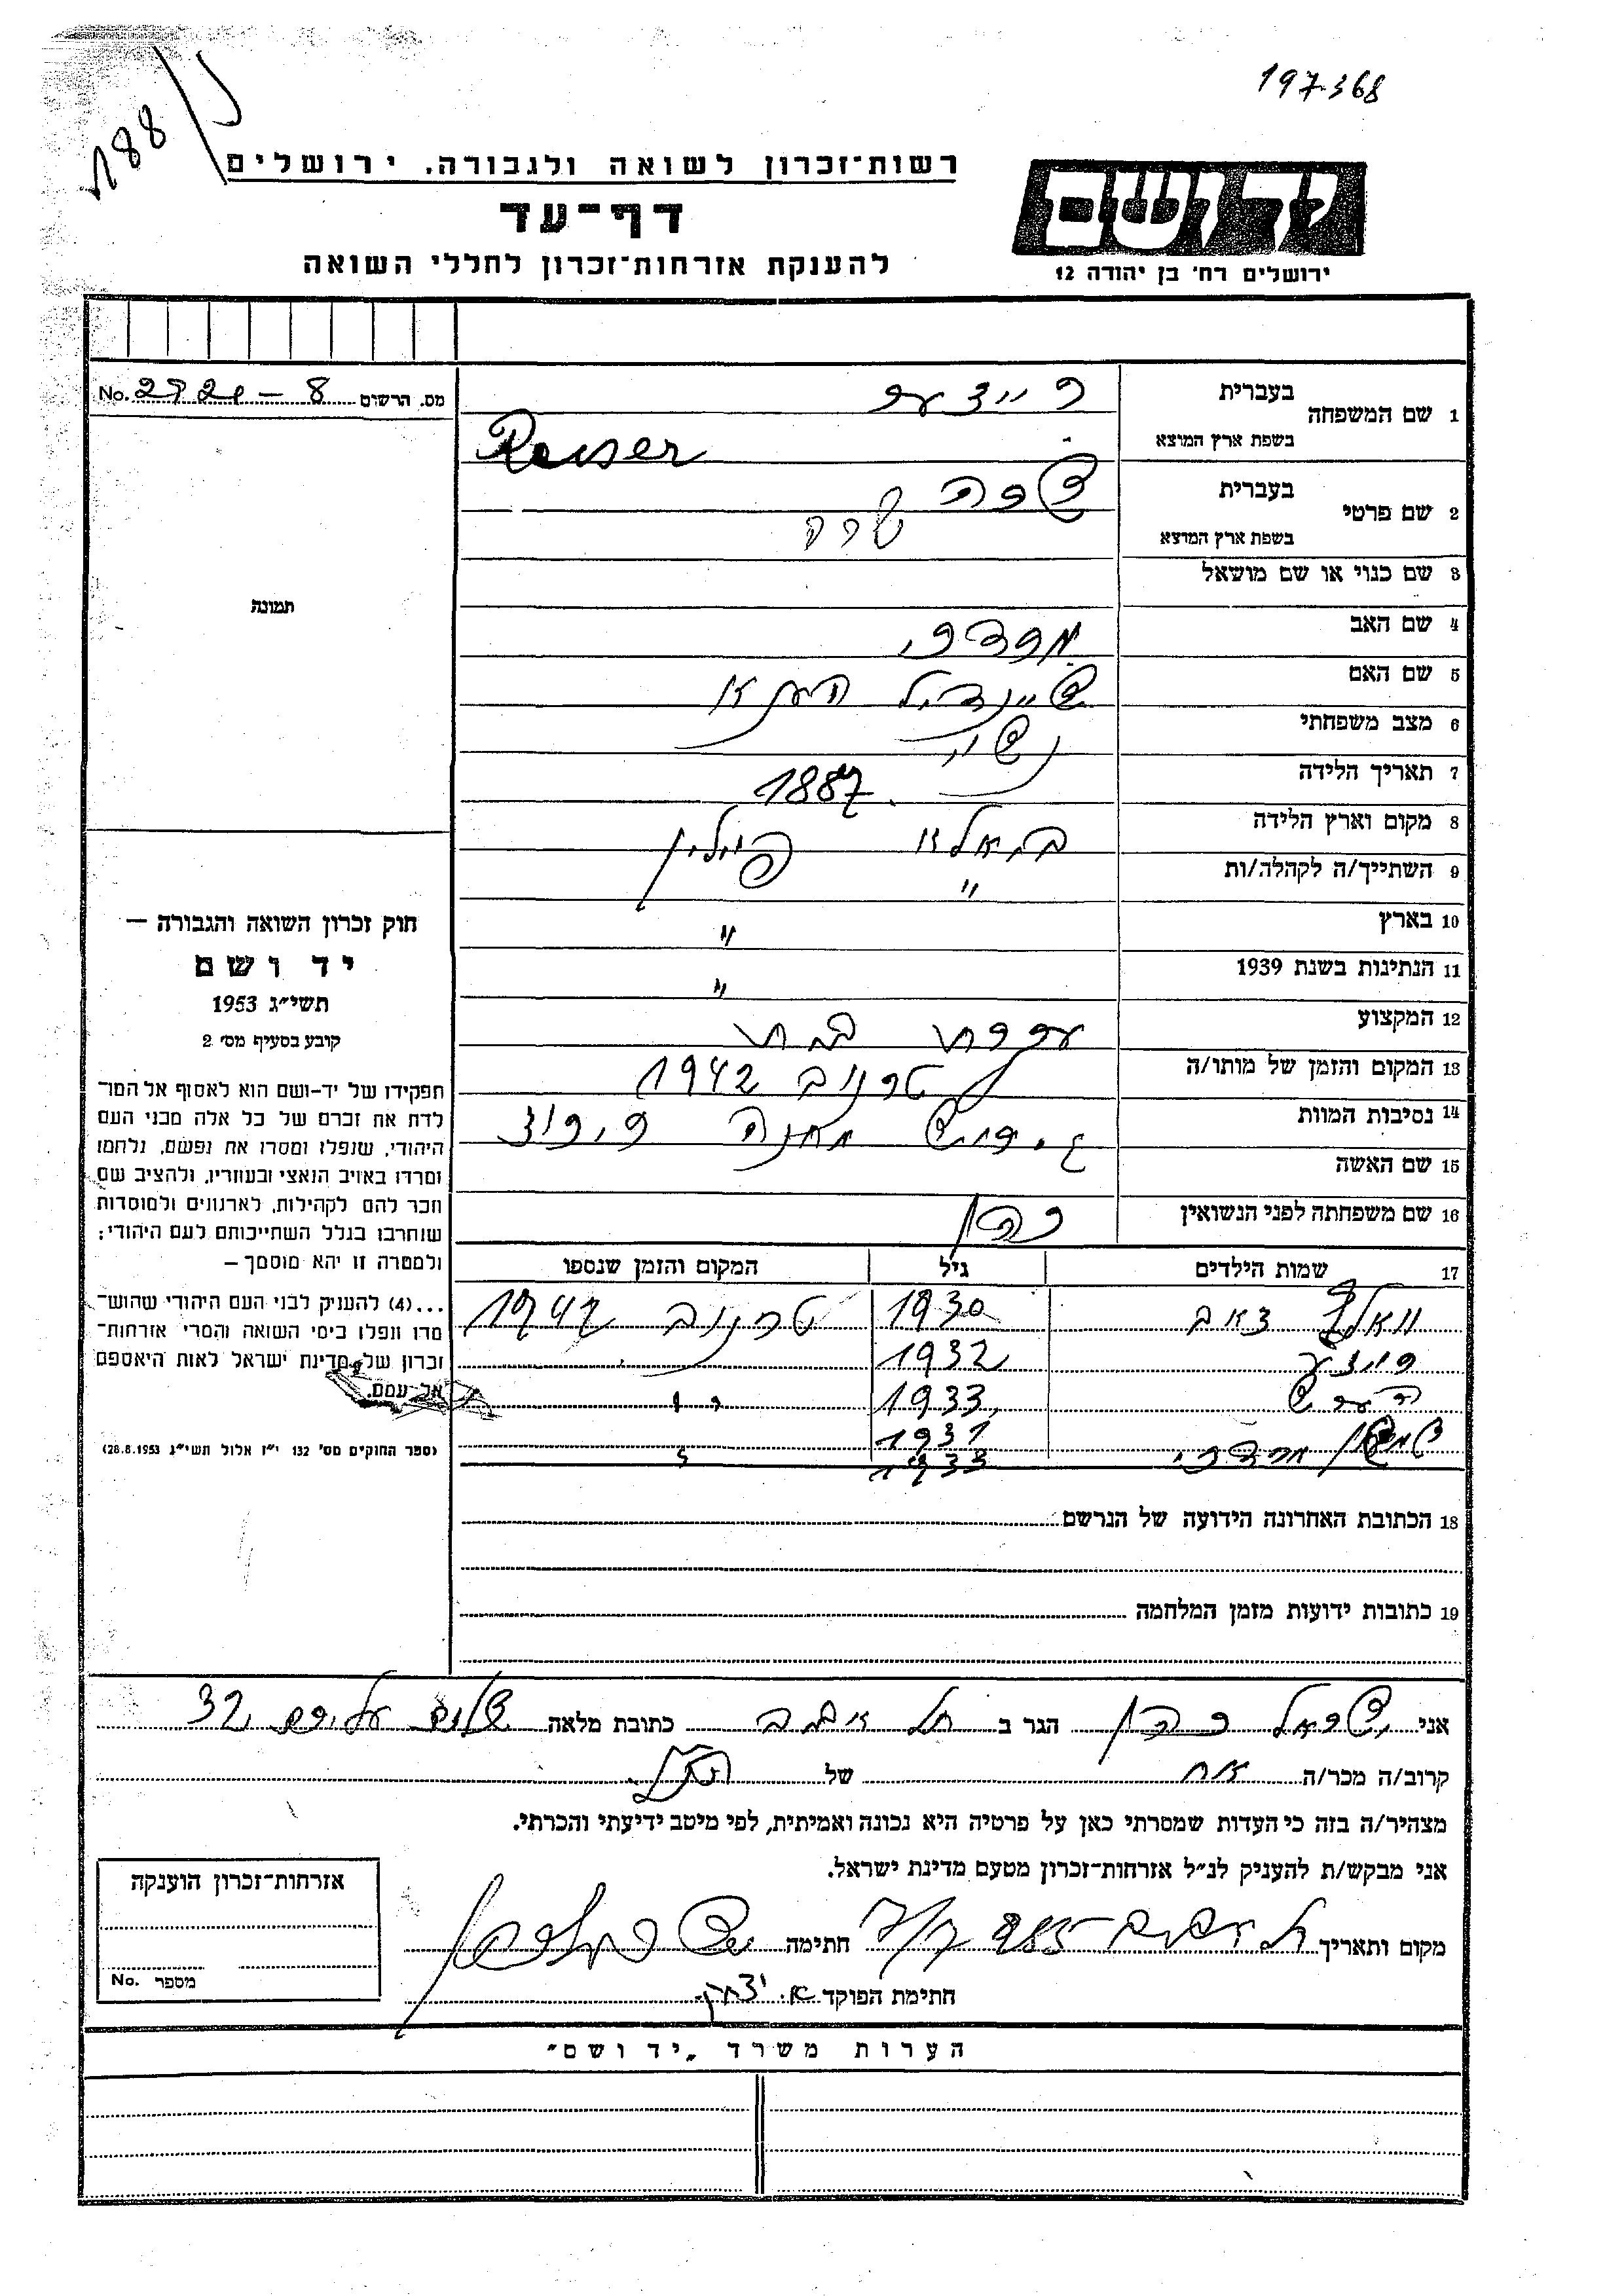 197368
188
רשות־זכרון לשואה ולגבורה. ירושלים
דף־עד
להענקת אזרחות־זכרון לחללי השואה
יד ושם
ירושלים רח' בן יהודה 12
מס. הרשום 8 – No.
1 שם המשפחה
בעברית רייזער
בשפת ארץ המוצא Reiser
2 שם פרטי
בעברית שרה
בשפת ארץ המוצא שרה
תמונה
3 שם כנוי או שם מושאל
4 שם האב מרדכי
5 שם האם שיינדיל
6 מצב משפחתי נשוי
7 תאריך הלידה 1887
8 מקום וארץ הלידה פוילין
9 השתייך/ה לקהלה/ות "
10 בארץ "
11 הנתינות בשנת 1939 "
12 המקצוע עקרת בית
13 המקום והזמן של מותו/ה טרנוב 1942
14 נסיבות המוות גירוש מחנה ריכוז
15 שם האשה
16 שם משפחתה לפני הנשואין
17 שמות הילדים גיל המקום והזמן שנספו
וואלף 1930 טרנוב 1942
1932
1933 "
מרדכי 1931
1933
18 הכתובת האחרונה הידועה של הנרשם
19 כתובות ידועות מזמן המלחמה
חוק זכרון השואה והגבורה —
יד ושם
תשי"ג 1953
קובע בסעיף מס' 2
תפקידו של יד-ושם הוא לאסוף אל המו־
לדת את זכרם של כל אלה מבני העם
היהודי, שנפלו ומסרו את נפשם, נלחמו
ומרדו באויב הנאצי ובעוזריו, ולהציב שם
וזכר להם לקהילות, לארגונים ולמוסדות
שנחרבו בגלל השתייכותם לעם היהודי;
ולמטרה זו יהא מוסמך —
...(4) להעניק לבני העם היהודי שהוש־
מדו ונפלו בימי השואה והמרי אזרחות־
זכרון של מדינת ישראל לאות היאספם
אל עמם.
(ספר החוקים מס' 132 י"ז אלול תשי"ג 28.8.1953)
אני ישראל הגר ב תל אביב כתובת מלאה שלום עליכם 32
קרוב/ה מכר/ה אח של הנ"ל
מצהיר/ה בזה כי העדות שמסרתי כאן על פרטיה היא נכונה ואמיתית, לפי מיטב ידיעתי והכרתי.
אני מבקש/ת להעניק לנ"ל אזרחות־זכרון מטעם מדינת ישראל.
מקום ותאריך חתימה
חתימת הפוקד א. יצחק
אזרחות־זכרון הוענקה
מספר No.
הערות משרד „יד ושם"